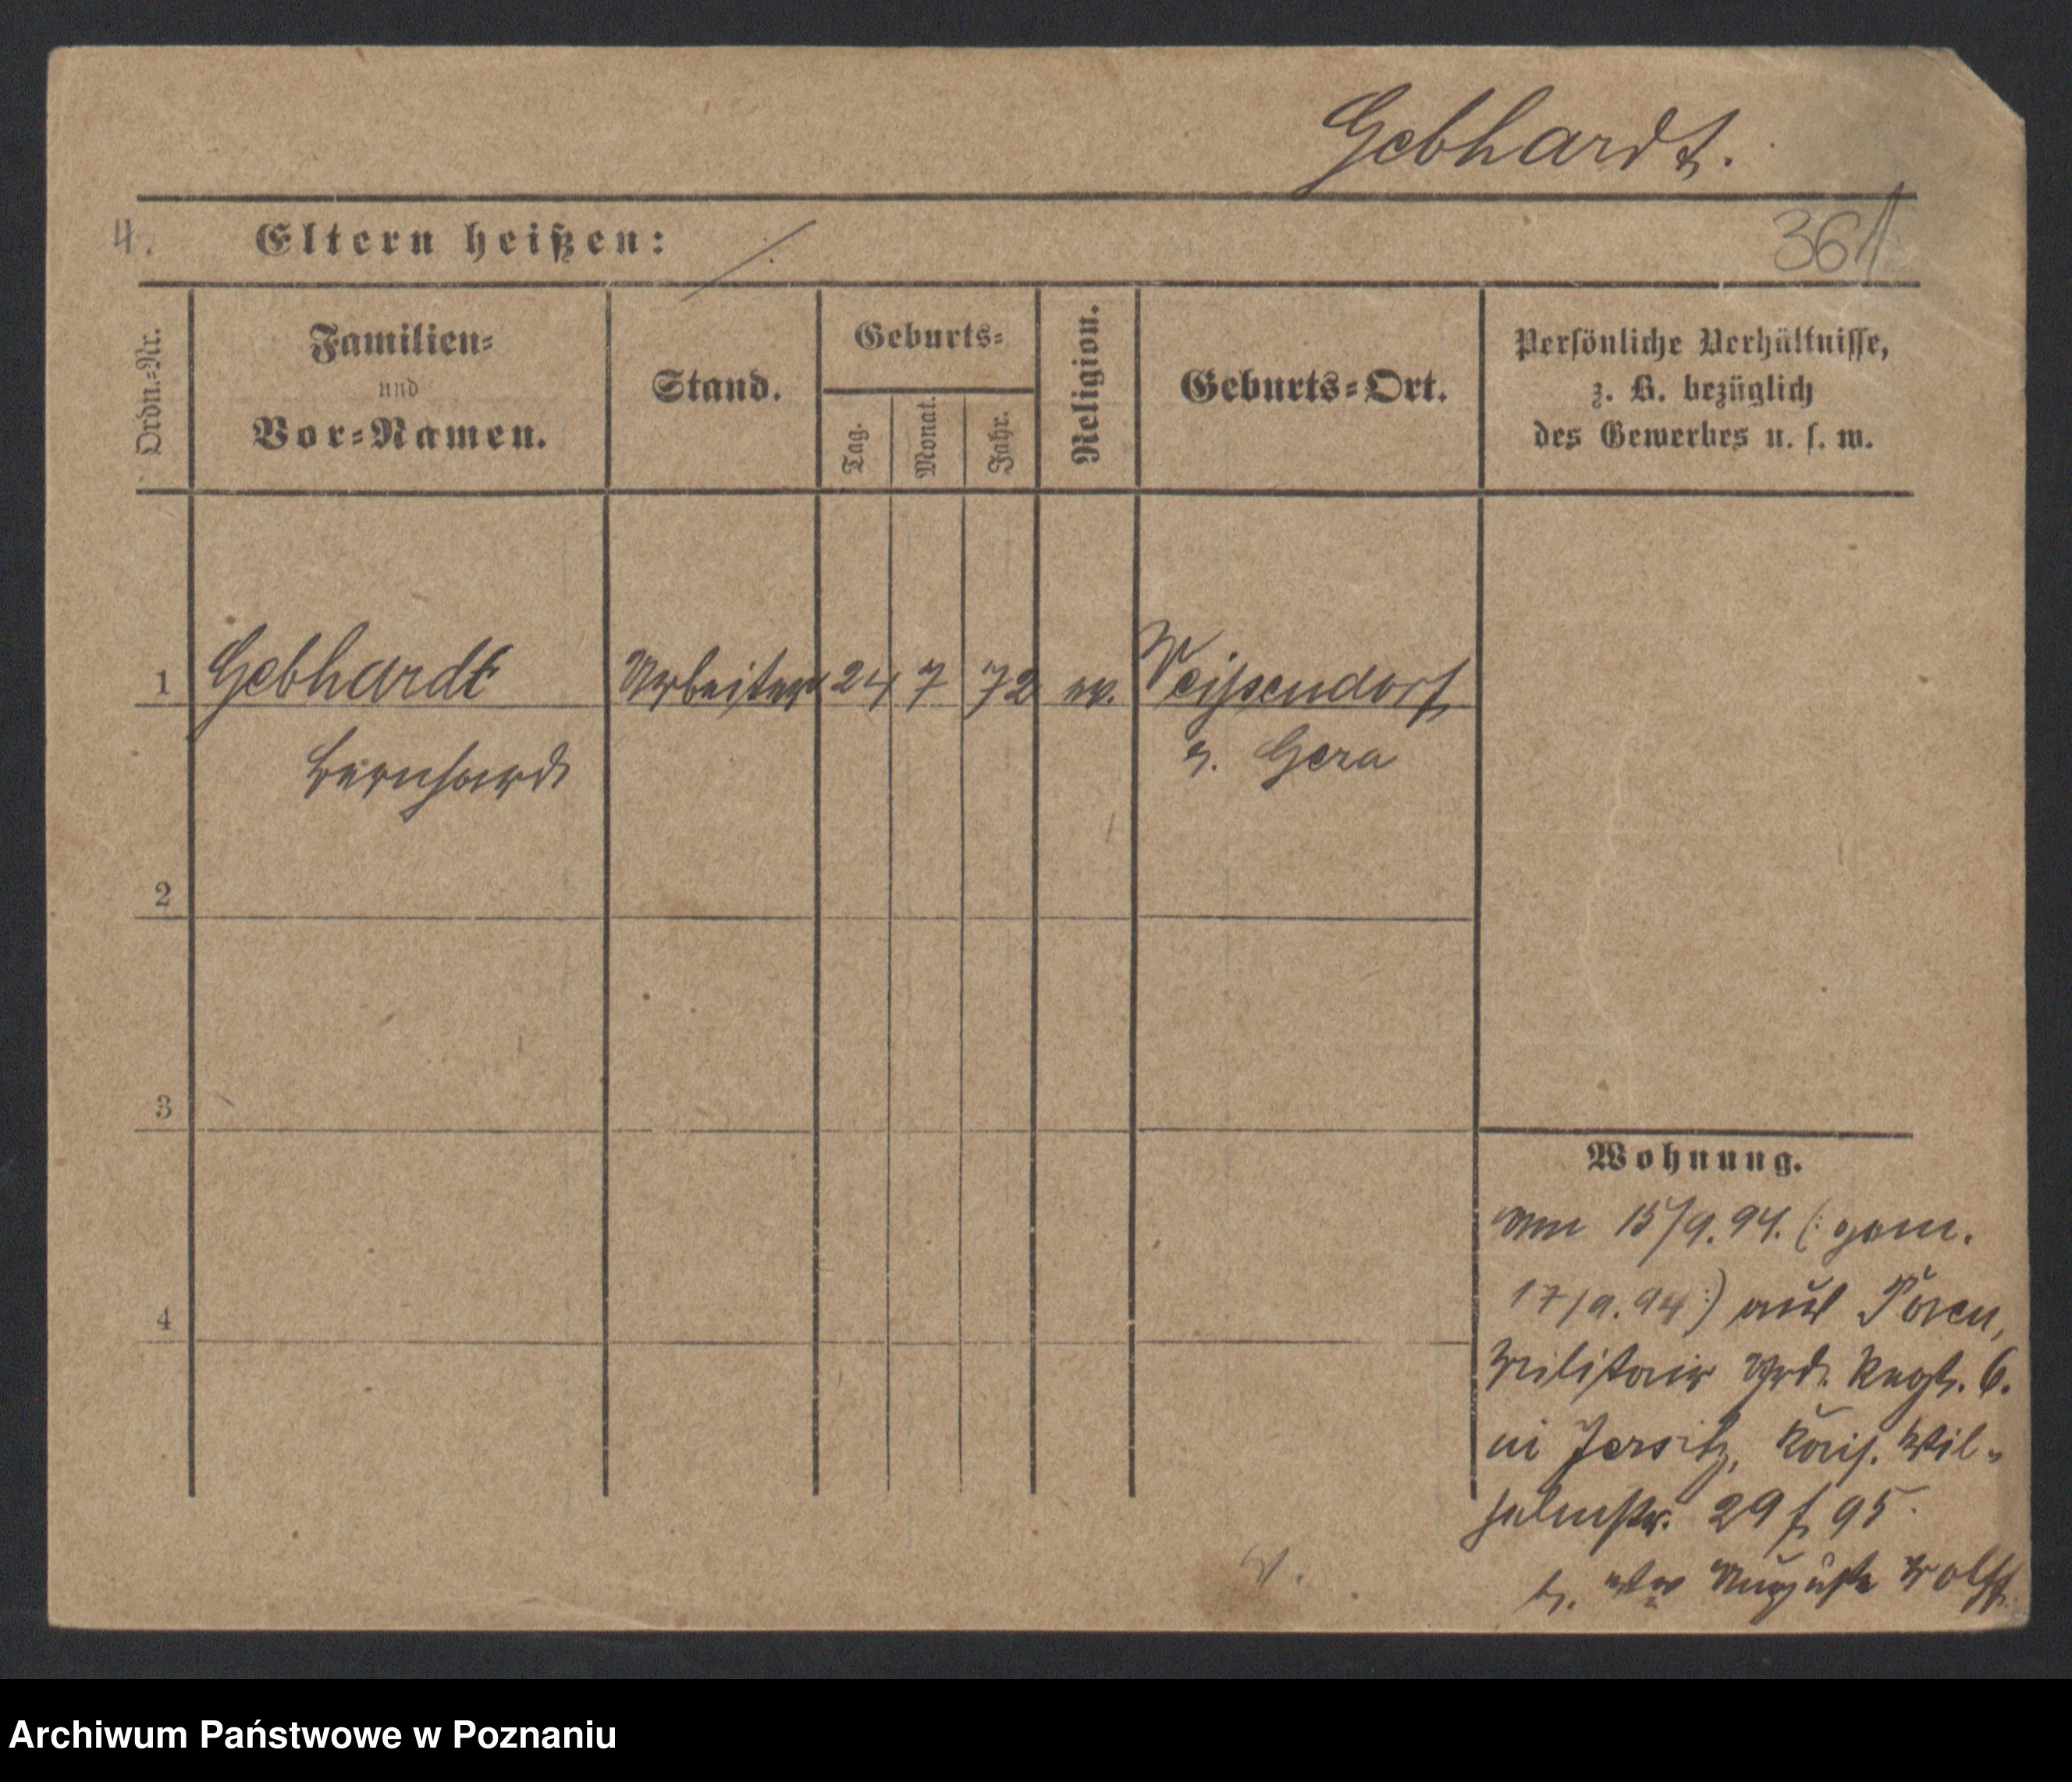 Gebhardt.
4. Eltern heißen: ·/.
361
Ordn.-Nr.
Familien-
und
Vor-Namen.
Stand.
Geburts-
Tag.
Monat.
Jahr.
Religion.
Geburts-Ort.
Persönliche Verhältnisse,
z. B. bezüglich
des Gewerbes u. s. w.
1 Gebhardt Arbeiter 24 7 72 ev. Weißendorf
Bernhardt z. Gera
2
3
4
Wohnung.
am 15/9.94. (: gem.
17/9.94 :) aus Posen,
Militair Grd. Regt. 6.
in Jersitz, Kais. Wil-
helmstr. 29 f 95.
b. Ww Auguste Wolff